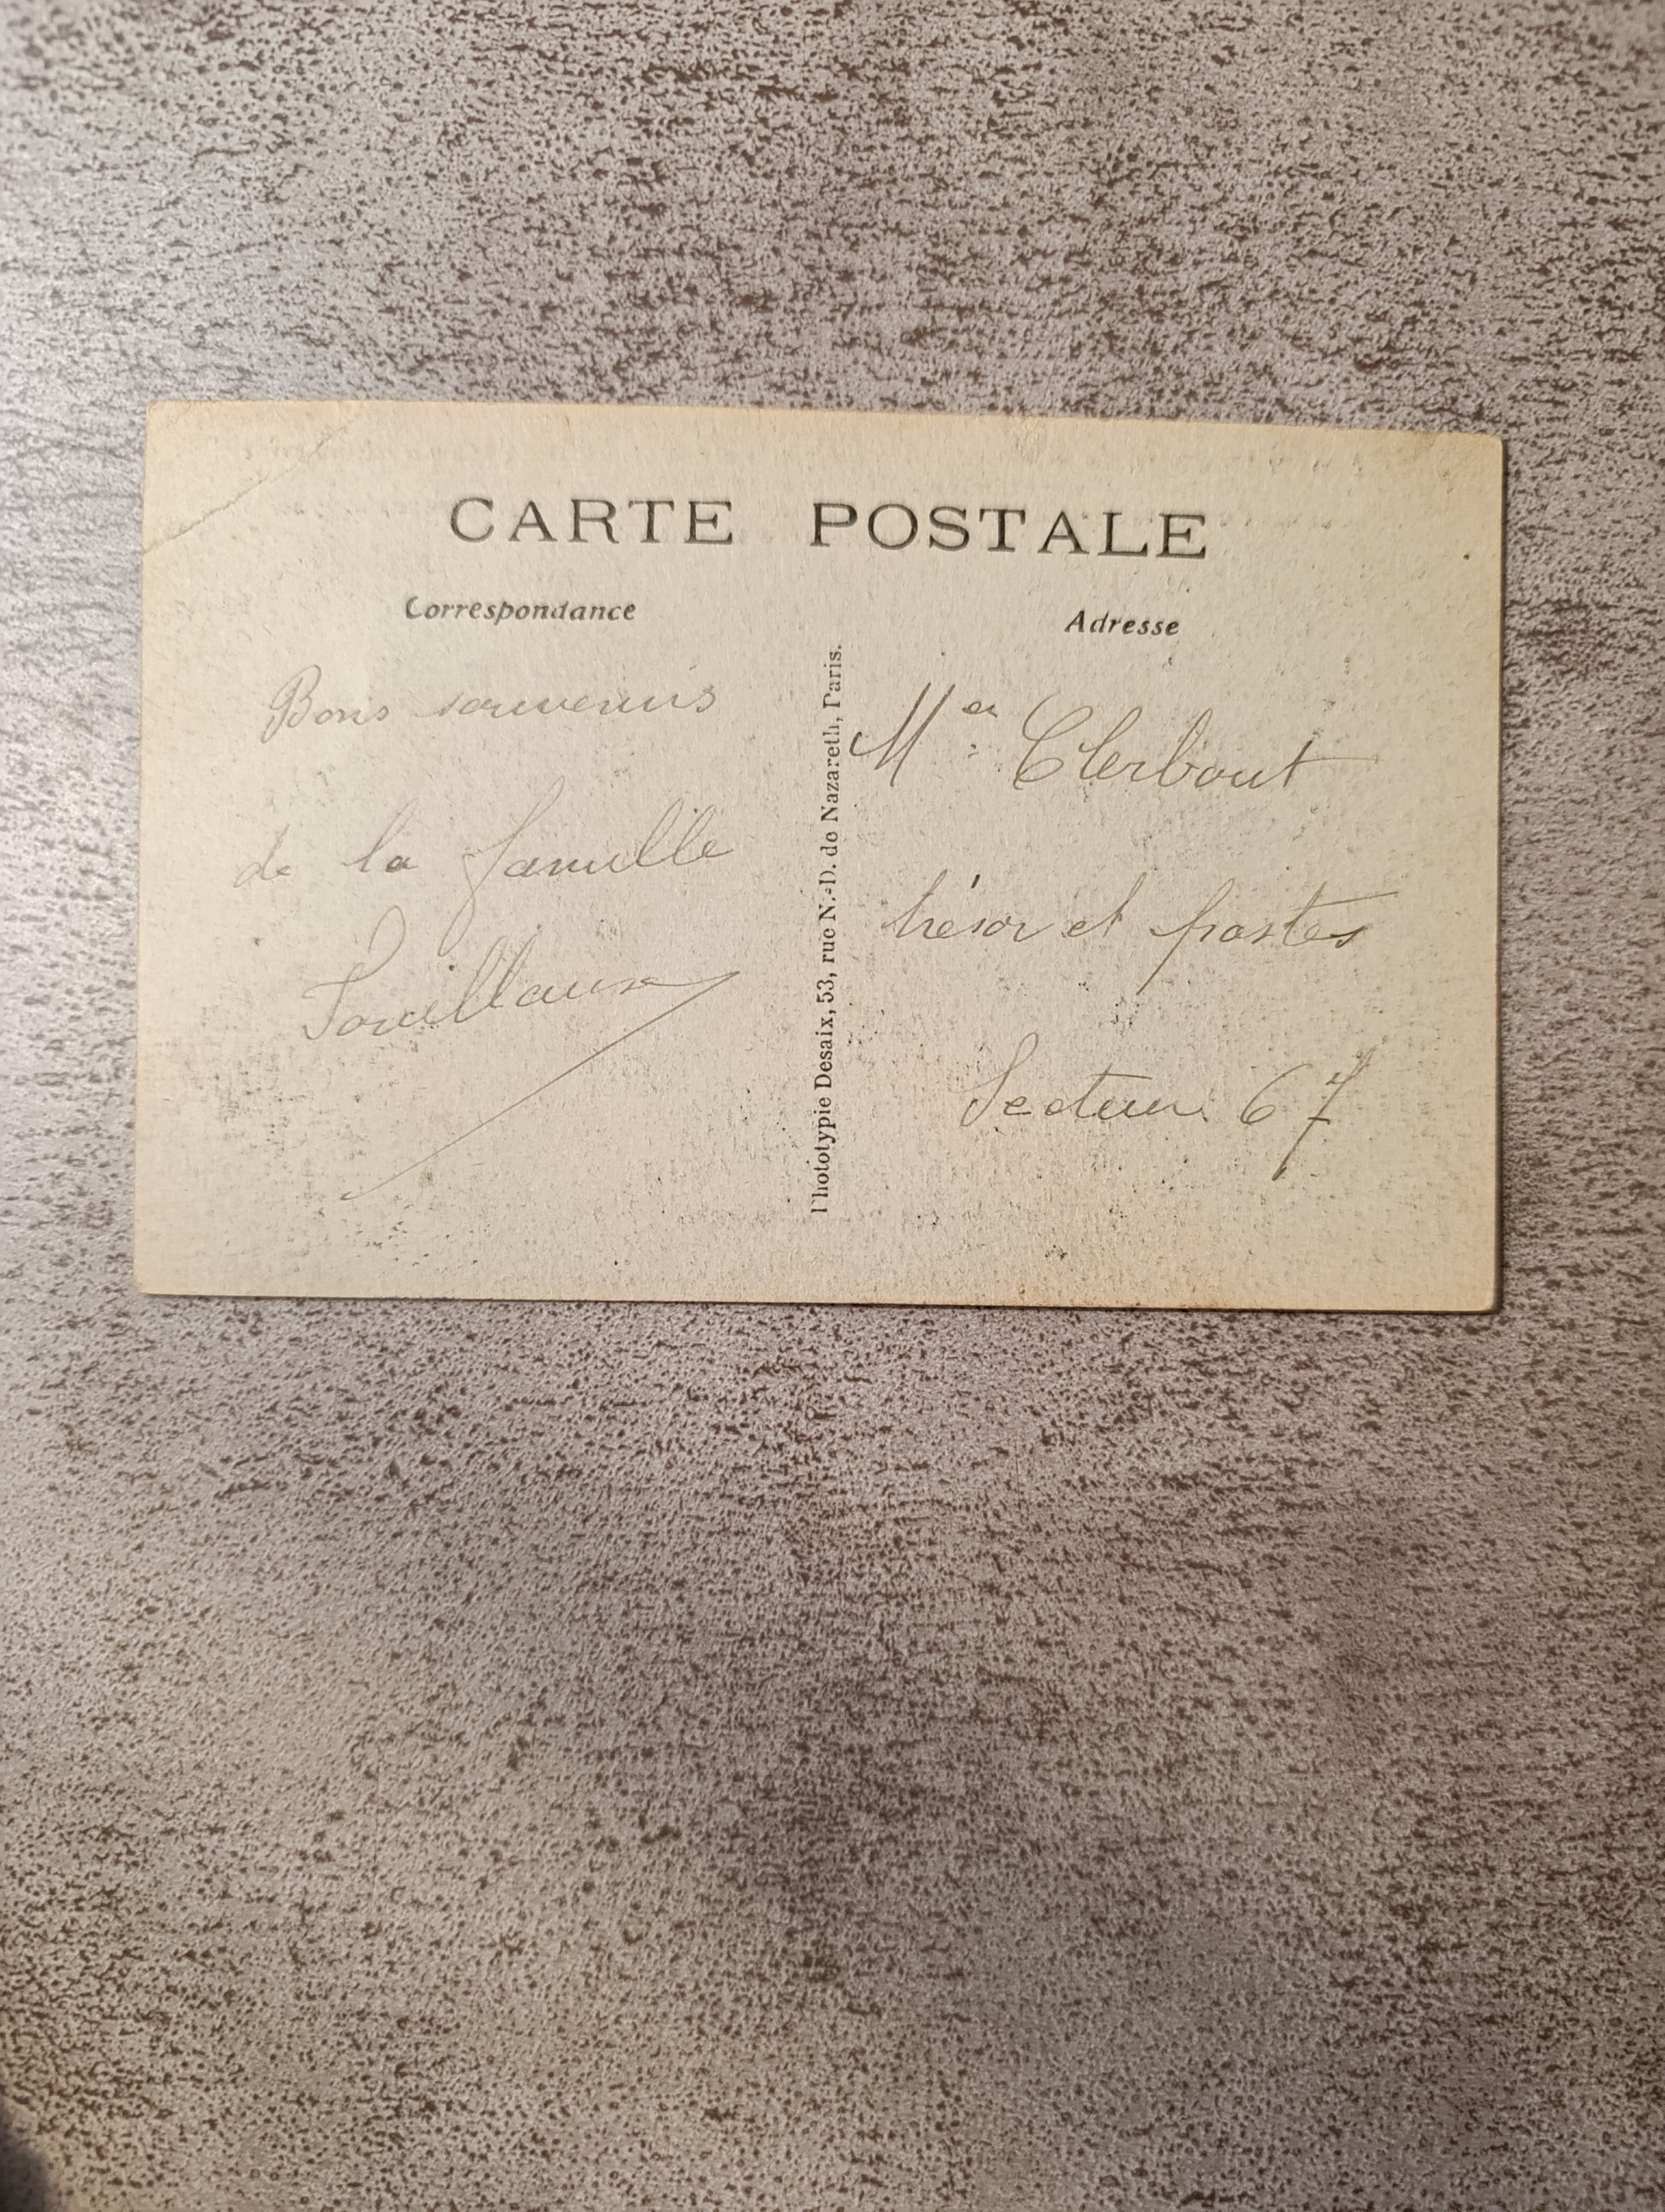 CARTE POSTALE
Correspondance
Bons souvenirs
de la famille
Adresse
Clerbout
trésor et postes
Secteur 67
Phototypie Desaix, 53, rue N.-D. de Nazareth, Paris.